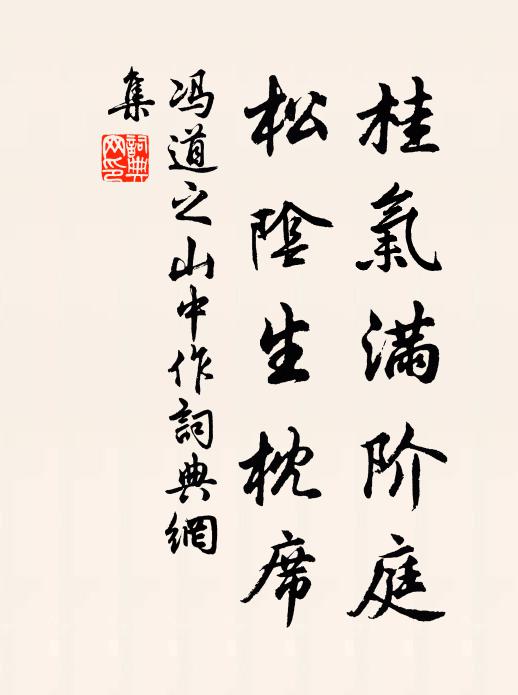 桂氣满阶庭
松陰生枕席
冯道之山中作詞典網
集
詞典
网印